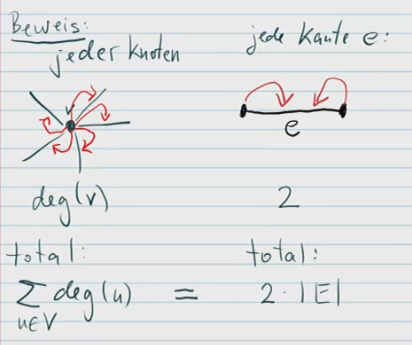 Beweis:
jeder Knoten
jede Kante e:
v
e
deg(v)
2
total:
total:
∑ deg(u) = 2·|E|
u∈V